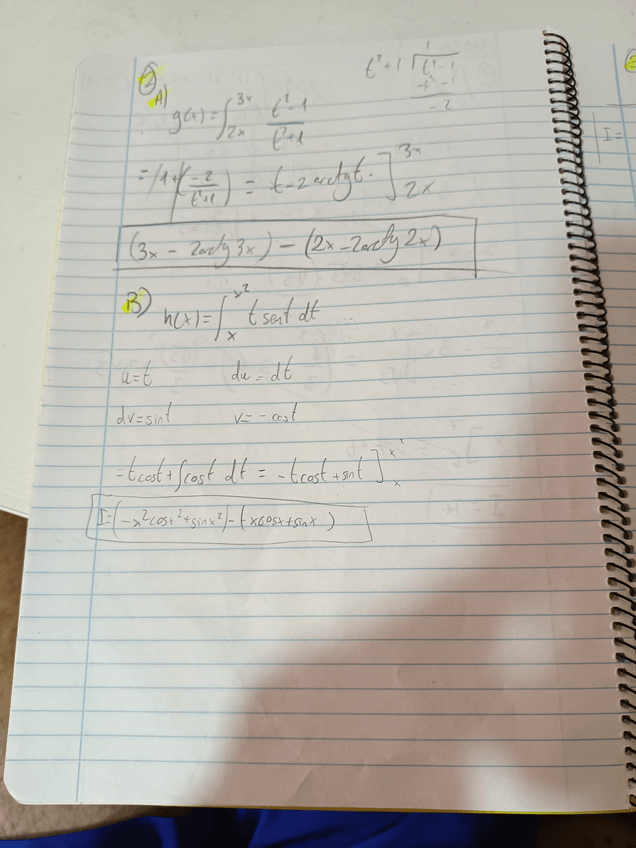 ②
A)
t²+1 1
t²-1
-t²-1
-2
g(x)=∫ 3x 2x t²-1 / t²+1
=∫1+(-2 / t²+1) = t-2arctg t ] 3x 2x
(3x - 2arctg 3x) - (2x - 2arctg 2x)
B) h(x)=∫ x² x t sent dt
u=t du=dt
dv=sint v=-cost
-tcost+∫cost dt = -tcost+sint ] x² x
I=(-x²cosx²+sinx²)-(-xcosx+sinx)
I=
3